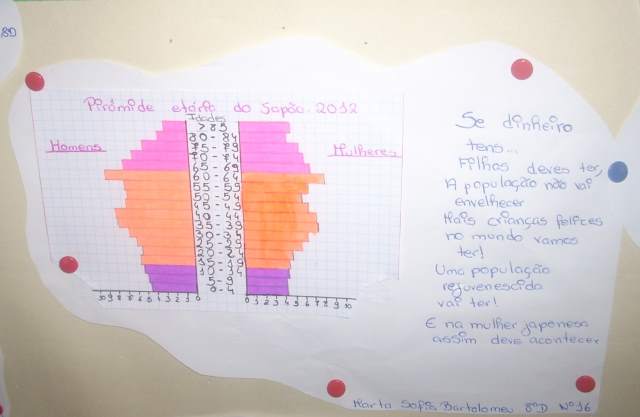 8D
Pirâmide etária do Japão 2012
Idades
Homens
Mulheres
> 85
80 - 84
75 - 79
70 - 74
65 - 69
60 - 64
55 - 59
50 - 54
45 - 49
40 - 44
35 - 39
30 - 34
25 - 29
20 - 24
15 - 19
10 - 14
5 - 9
0 - 4
10 9 8 7 6 5 4 3 2 1 0
0 1 2 3 4 5 6 7 8 9 10
Se dinheiro
tens...
Filhos deves ter,
A população não vai
envelhecer
Mais crianças felizes
no mundo vamos
ter!
Uma população
rejuvenescida
vai ter!
E na mulher japonesa
assim deve acontecer
Marta Sofia Bartolomeu 8ºD Nº16